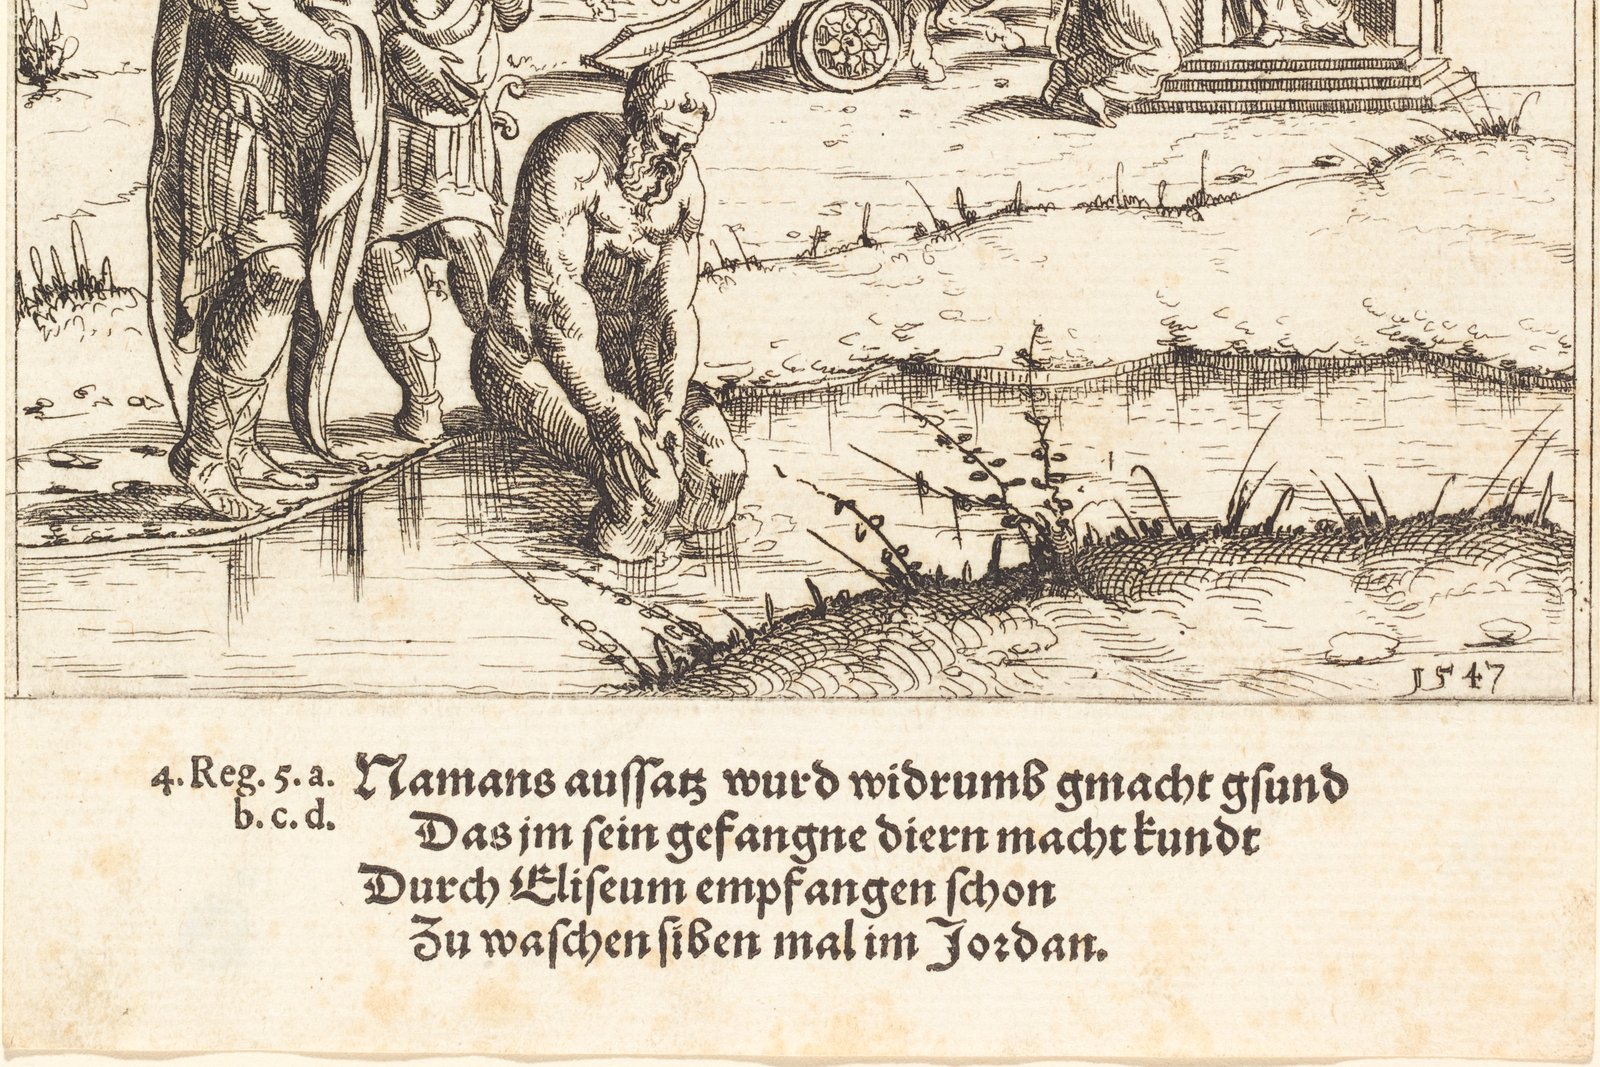 1547
4. Reg. 5. a. Namans aussatz wurd widrumb gmacht gsund
b. c. d. Das jm sein gefangne diern macht kundt
Durch Eliseum empfangen schon
Zu waschen siben mal im Jordan.